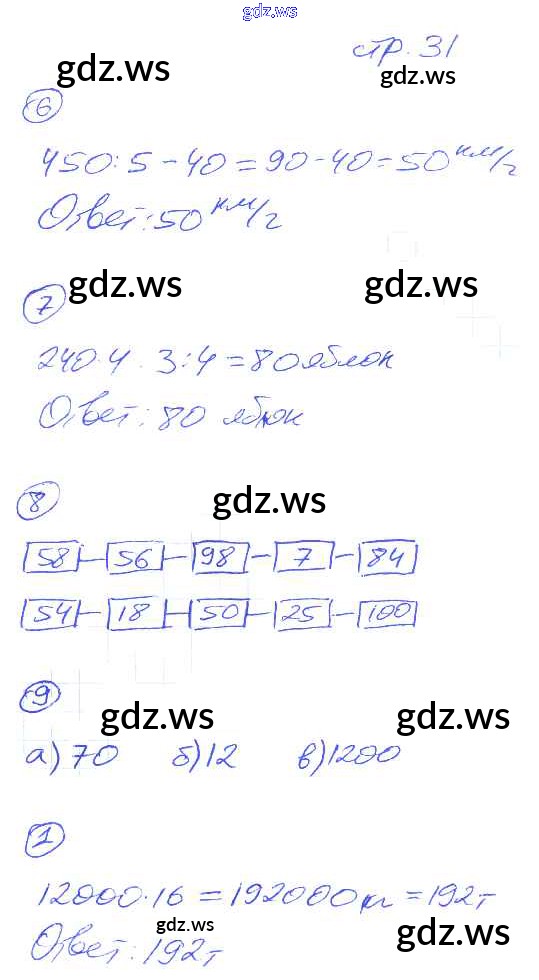 gdz.ws
стр. 31
gdz.ws gdz.ws
6
450:5-40=90-40=50 км/ч
Ответ: 50 км/ч
gdz.ws gdz.ws
7
240·4·3:4=80 яблок
Ответ: 80 яблок
8 gdz.ws
58 - 56 - 98 - 7 - 84
54 - 18 - 50 - 25 - 100
9
gdz.ws gdz.ws
а) 70 б) 12 в) 1200
1
12000·16=192000 кг=192 т
gdz.ws gdz.ws
Ответ: 192 т